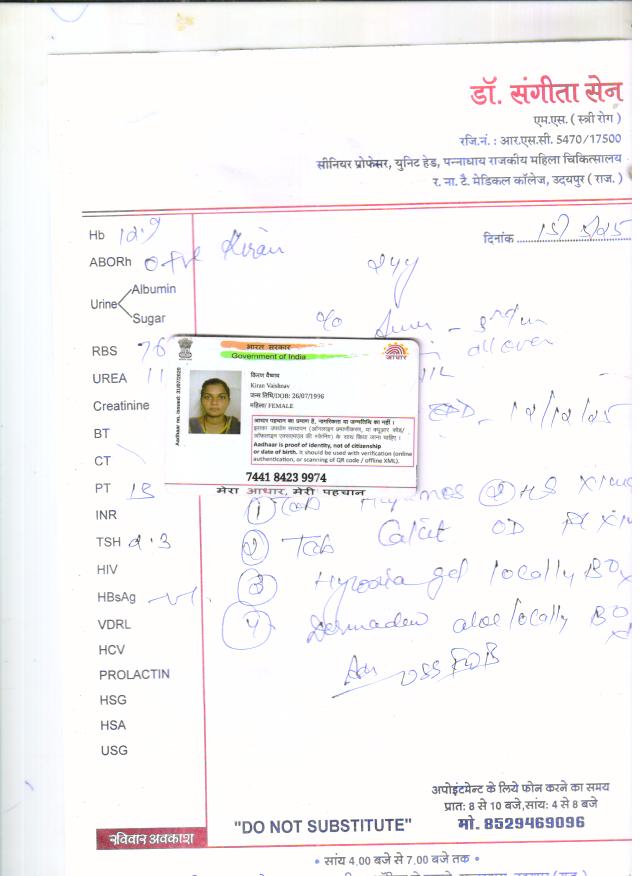 डॉ. संगीता सेन
एम.एस. ( स्त्री रोग )
रजि.नं. : आर.एस.सी. 5470/17500
सीनियर प्रोफेसर, युनिट हेड, पन्नाधाय राजकीय महिला चिकित्सालय
र. ना. टै. मेडिकल कॉलेज, उदयपुर ( राज. )
दिनांक 15/5/25
Hb 12.9
ABORh O +ve Kiran
Urine Albumin
Sugar
RBS 76
UREA 11
Creatinine
BT
CT
PT 13
INR
TSH 2.3
HIV
HBsAg
VDRL
HCV
PROLACTIN
HSG
HSA
USG
all over
EDD - 12/12/25
भारत सरकार
Government of India
आधार
Aadhaar no. issued: 31/07/2020
किरण वैष्णव
Kiran Vaishnav
जन्म तिथि/DOB: 26/07/1996
महिला/ FEMALE
आधार पहचान का प्रमाण है, नागरिकता या जन्मतिथि का नहीं।
इसका उपयोग सत्यापन (ऑनलाइन प्रमाणीकरण, या क्यूआर कोड/
ऑफलाइन एक्सएमएल की स्कैनिंग) के साथ किया जाना चाहिए।
Aadhaar is proof of identity, not of citizenship
or date of birth. It should be used with verification (online
authentication, or scanning of QR code / offline XML).
7441 8423 9974
मेरा आधार, मेरी पहचान
1 Tab HS
2 Tab Calcit OD
3 gel locally BD
4 Dermadew aloe locally BD
Adv
"DO NOT SUBSTITUTE"
अपोइंटमेन्ट के लिये फोन करने का समय
प्रात: 8 से 10 बजे,सांय: 4 से 8 बजे
मो. 8529469096
रविवार अवकाश
• सांय 4.00 बजे से 7.00 बजे तक •